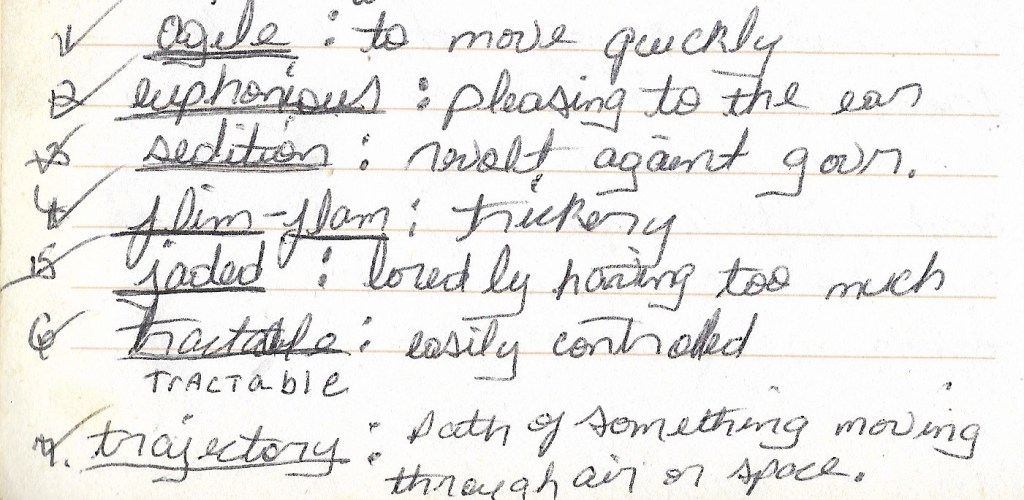 1 agile : to move quickly
2 euphonious : pleasing to the ear
3 sedition : revolt against govn.
4 flim-flam : trickery
5 jaded : bored by having too much
6 tractable : easily controlled
TrAcTable
7. trajectory : path of something moving
through air or space.